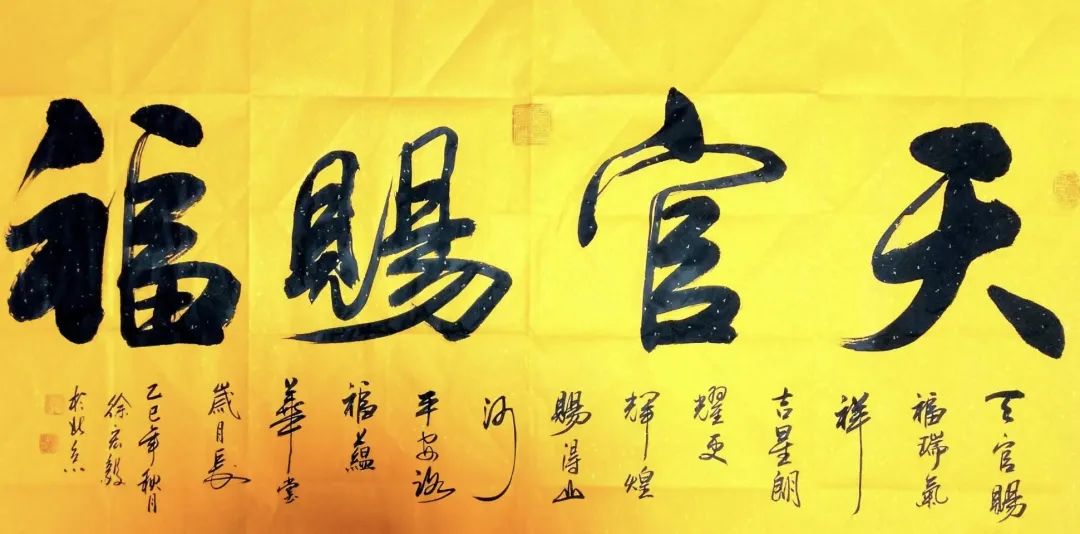 天官賜福
天官賜
福瑞氣
祥
吉星朗
耀更
輝煌
賜得山
河
平安
福蘊
華堂
歲月長
乙巳年秋月
徐宏毅
於北京